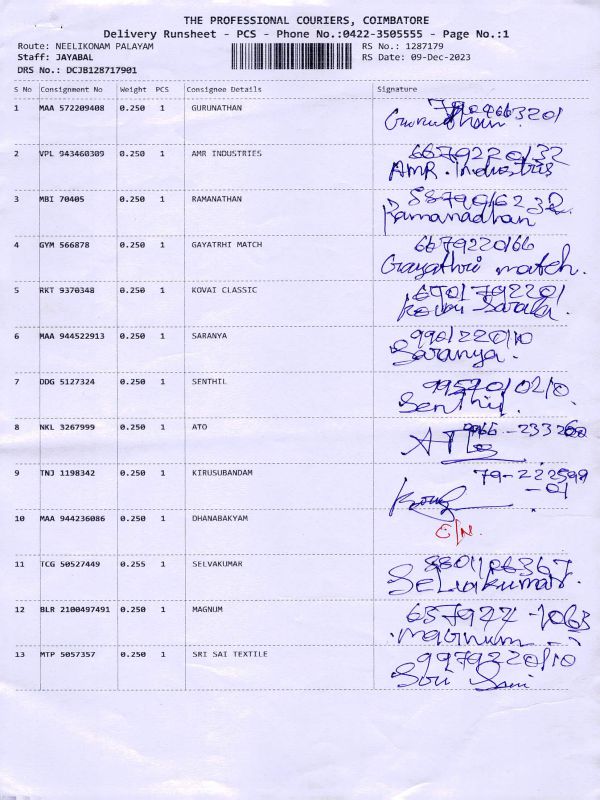 THE PROFESSIONAL COURIERS, COIMBATORE
Delivery Runsheet - PCS - Phone No.:0422-3505555 - Page No.:1
Route: NEELIKONAM PALAYAM RS No.: 1287179
Staff: JAYABAL RS Date: 09-Dec-2023
DRS No.: DCJB128717901
S No Consignment No Weight PCS Consignee Details Signature
1 MAA 572209408 0.250 1 GURUNATHAN
2 VPL 943460309 0.250 1 AMR INDUSTRIES 6679220/32
AMR. Industris
3 MBI 70405 0.250 1 RAMANATHAN
Ramanadhan
4 GYM 566878 0.250 1 GAYATRHI MATCH 6679220/66
Gayathri match.
5 RKT 9370348 0.250 1 KOVAI CLASSIC
6 MAA 944522913 0.250 1 SARANYA 990/220/10
Saranya.
7 DDG 5127324 0.250 1 SENTHIL 99570/02/0.
Senthil.
8 NKL 3267999 0.250 1 ATO
9 TNJ 1198342 0.250 1 KIRUSUBANDAM 79-222598
-01
10 MAA 944236086 0.250 1 DHANABAKYAM
11 TCG 50527449 0.255 1 SELVAKUMAR
Selvakumar.
12 BLR 2100497491 0.250 1 MAGNUM
magnum
13 MTP 5057357 0.250 1 SRI SAI TEXTILE 9979220/10
Sri Sai